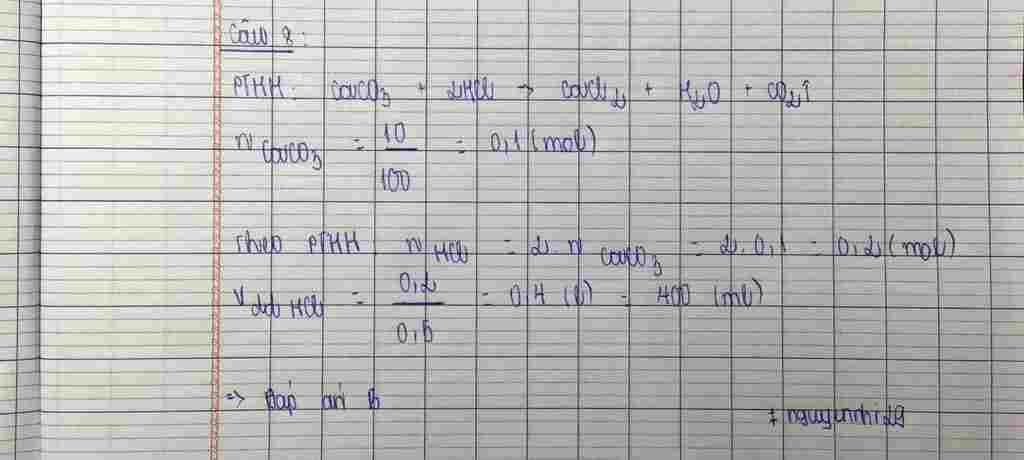 Câu 8:
PTHH: CaCO3 + 2HCl → CaCl2 + H2O + CO2↑
nCaCO3 = 10/100 = 0,1 (mol)
Theo PTHH nHCl = 2.nCaCO3 = 2.0,1 = 0,2 (mol)
Vdd HCl = 0,2/0,5 = 0,4 (l) = 400 (ml)
=> Đáp án B
# nguyennhi29